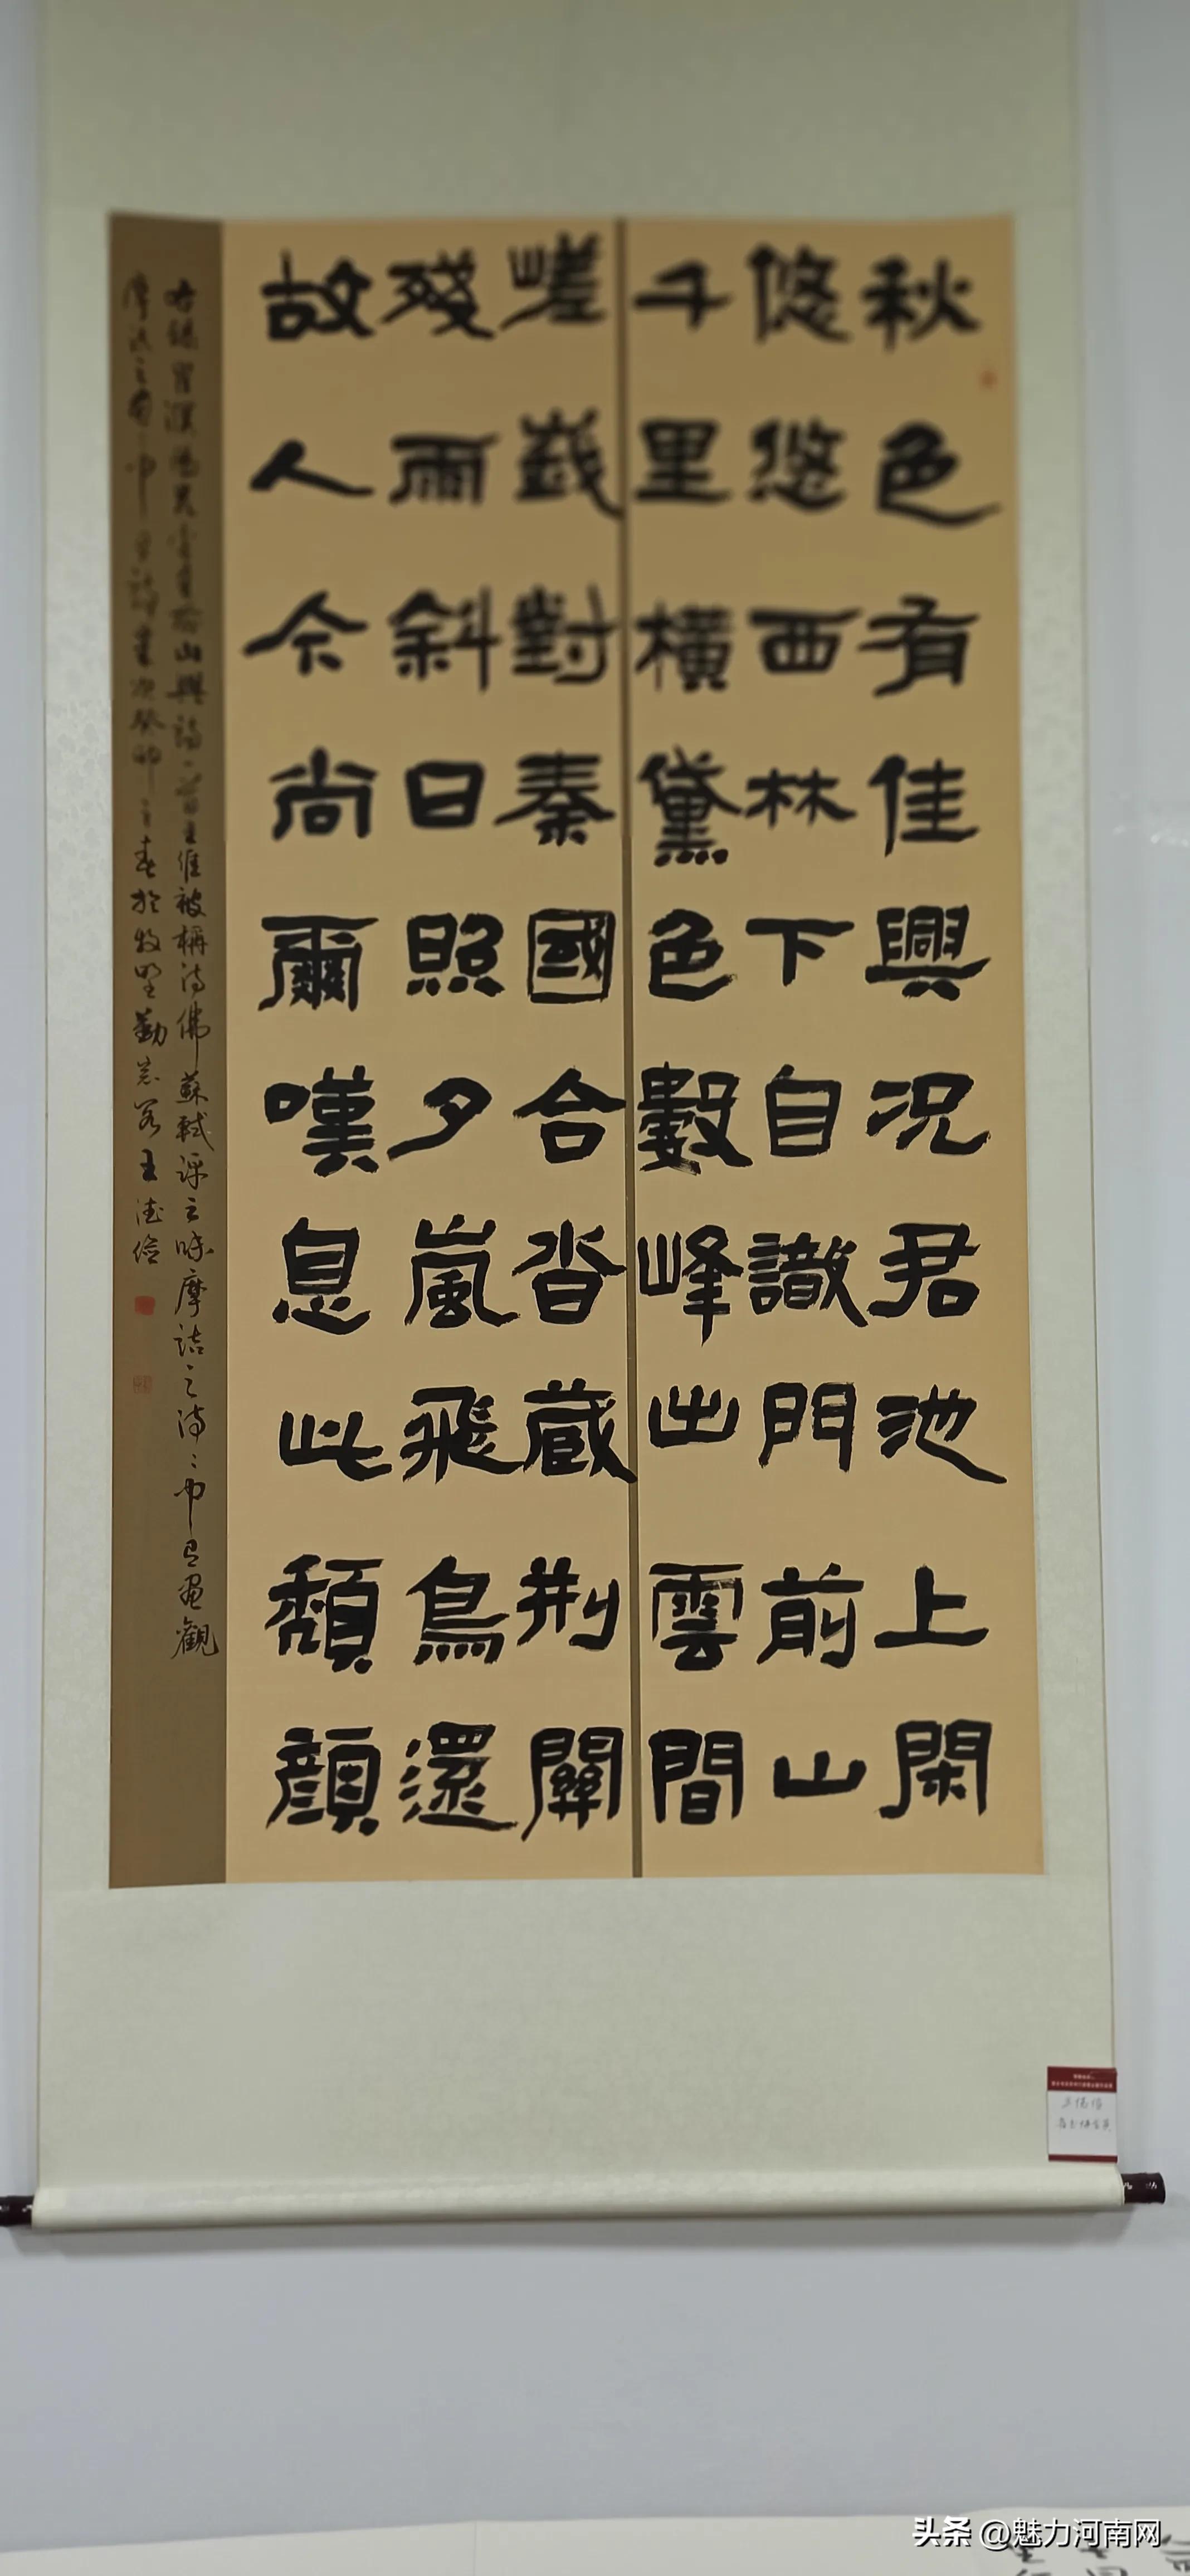 秋色有佳興況君池上閑
悠悠西林下自識門前山
千里橫黛色數峰出雲間
嵯峩對秦國合沓蔵荆關
殘雨斜日照夕嵐飛鳥還
故人今尚爾嘆息此頹顔
右録崔濮陽兄季重前山興詩詩者王維被稱詩佛蘇軾評之味摩詰之詩詩中有畫觀
摩詰之畫畫中有詩嵗次癸卯之春於牧野勤 王德
头条 @魅力河南网